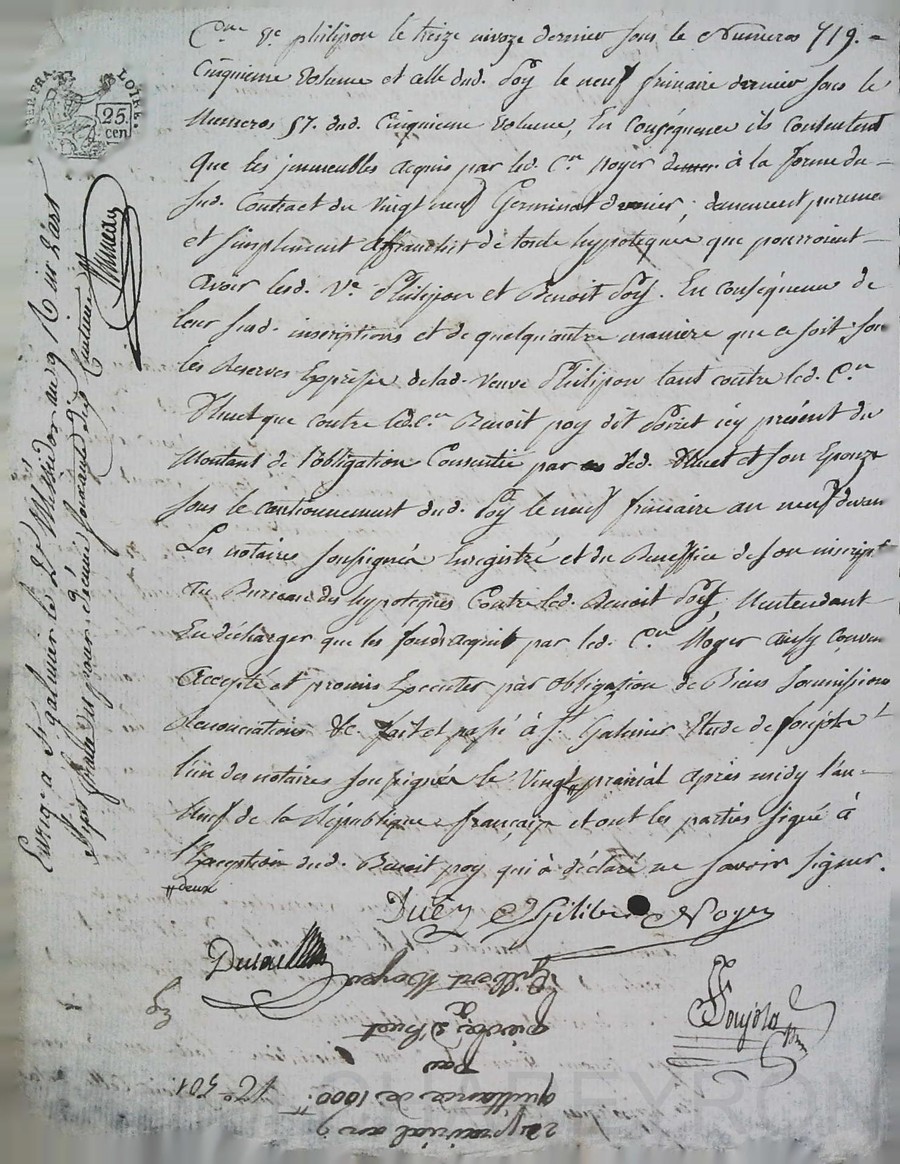 C.ne Ve. philipon le treize nivoze dernier sous le Numeros 719.
Cinquieme Volume et celle dud. Poy le neuf frimaire dernier sous le
Numeros 57. dud. Cinquieme Volume, En Conséquence ils Consentent
Que les immeubles acquis par led. C.en Noyer à la forme du
Sud. Contract du Vingt neuf Germinal dernier; demeurent purement
et simplement affranchis de toute hypoteque que pourroient
avoir lesd. Ve. Philipon et Benoit Poy. En conséquence de
leur susd. inscriptions et de quelqu'autre maniere que ce soit, sou
les Reserves Expresse delad. Veuve Philipon tant contre led. C.en
Huet que contre led. C.en Benoit poy dit icy présent du
Montant de l'obligation Consentie par led. Huet et son Epouze
sous le cautionnement dud. Poy le neuf frimaire an neuf devan
Les notaires soussignés Enregistré et du Beneffice de son inscript
au Bureau des hypoteques Contre led. Benoit Poy, Nentendant
En décharger que les fonds acquis par led. C.en Noyer ainsy Conven
Accepté et promis Executer par obligation de Biens Soumissions
Renonciations &c. fait et passé à St. Galmier Etude de Ponjola
l'un des notaires soussignés le Vingt prairial après midy l'an
Neuf de la République française et ont les parties signé à
l'Exception dud. Benoit poy qui à déclaré ne savoir signer.
deux
Noyer
Ponjola
Enrigé a St galmier le 2 Messidor an 9
REP. FRA.
LOIRE.
25.
cen
22 prairial an 9
quittance de 1000
par
pierre Huet
a
Gilbert Noyer